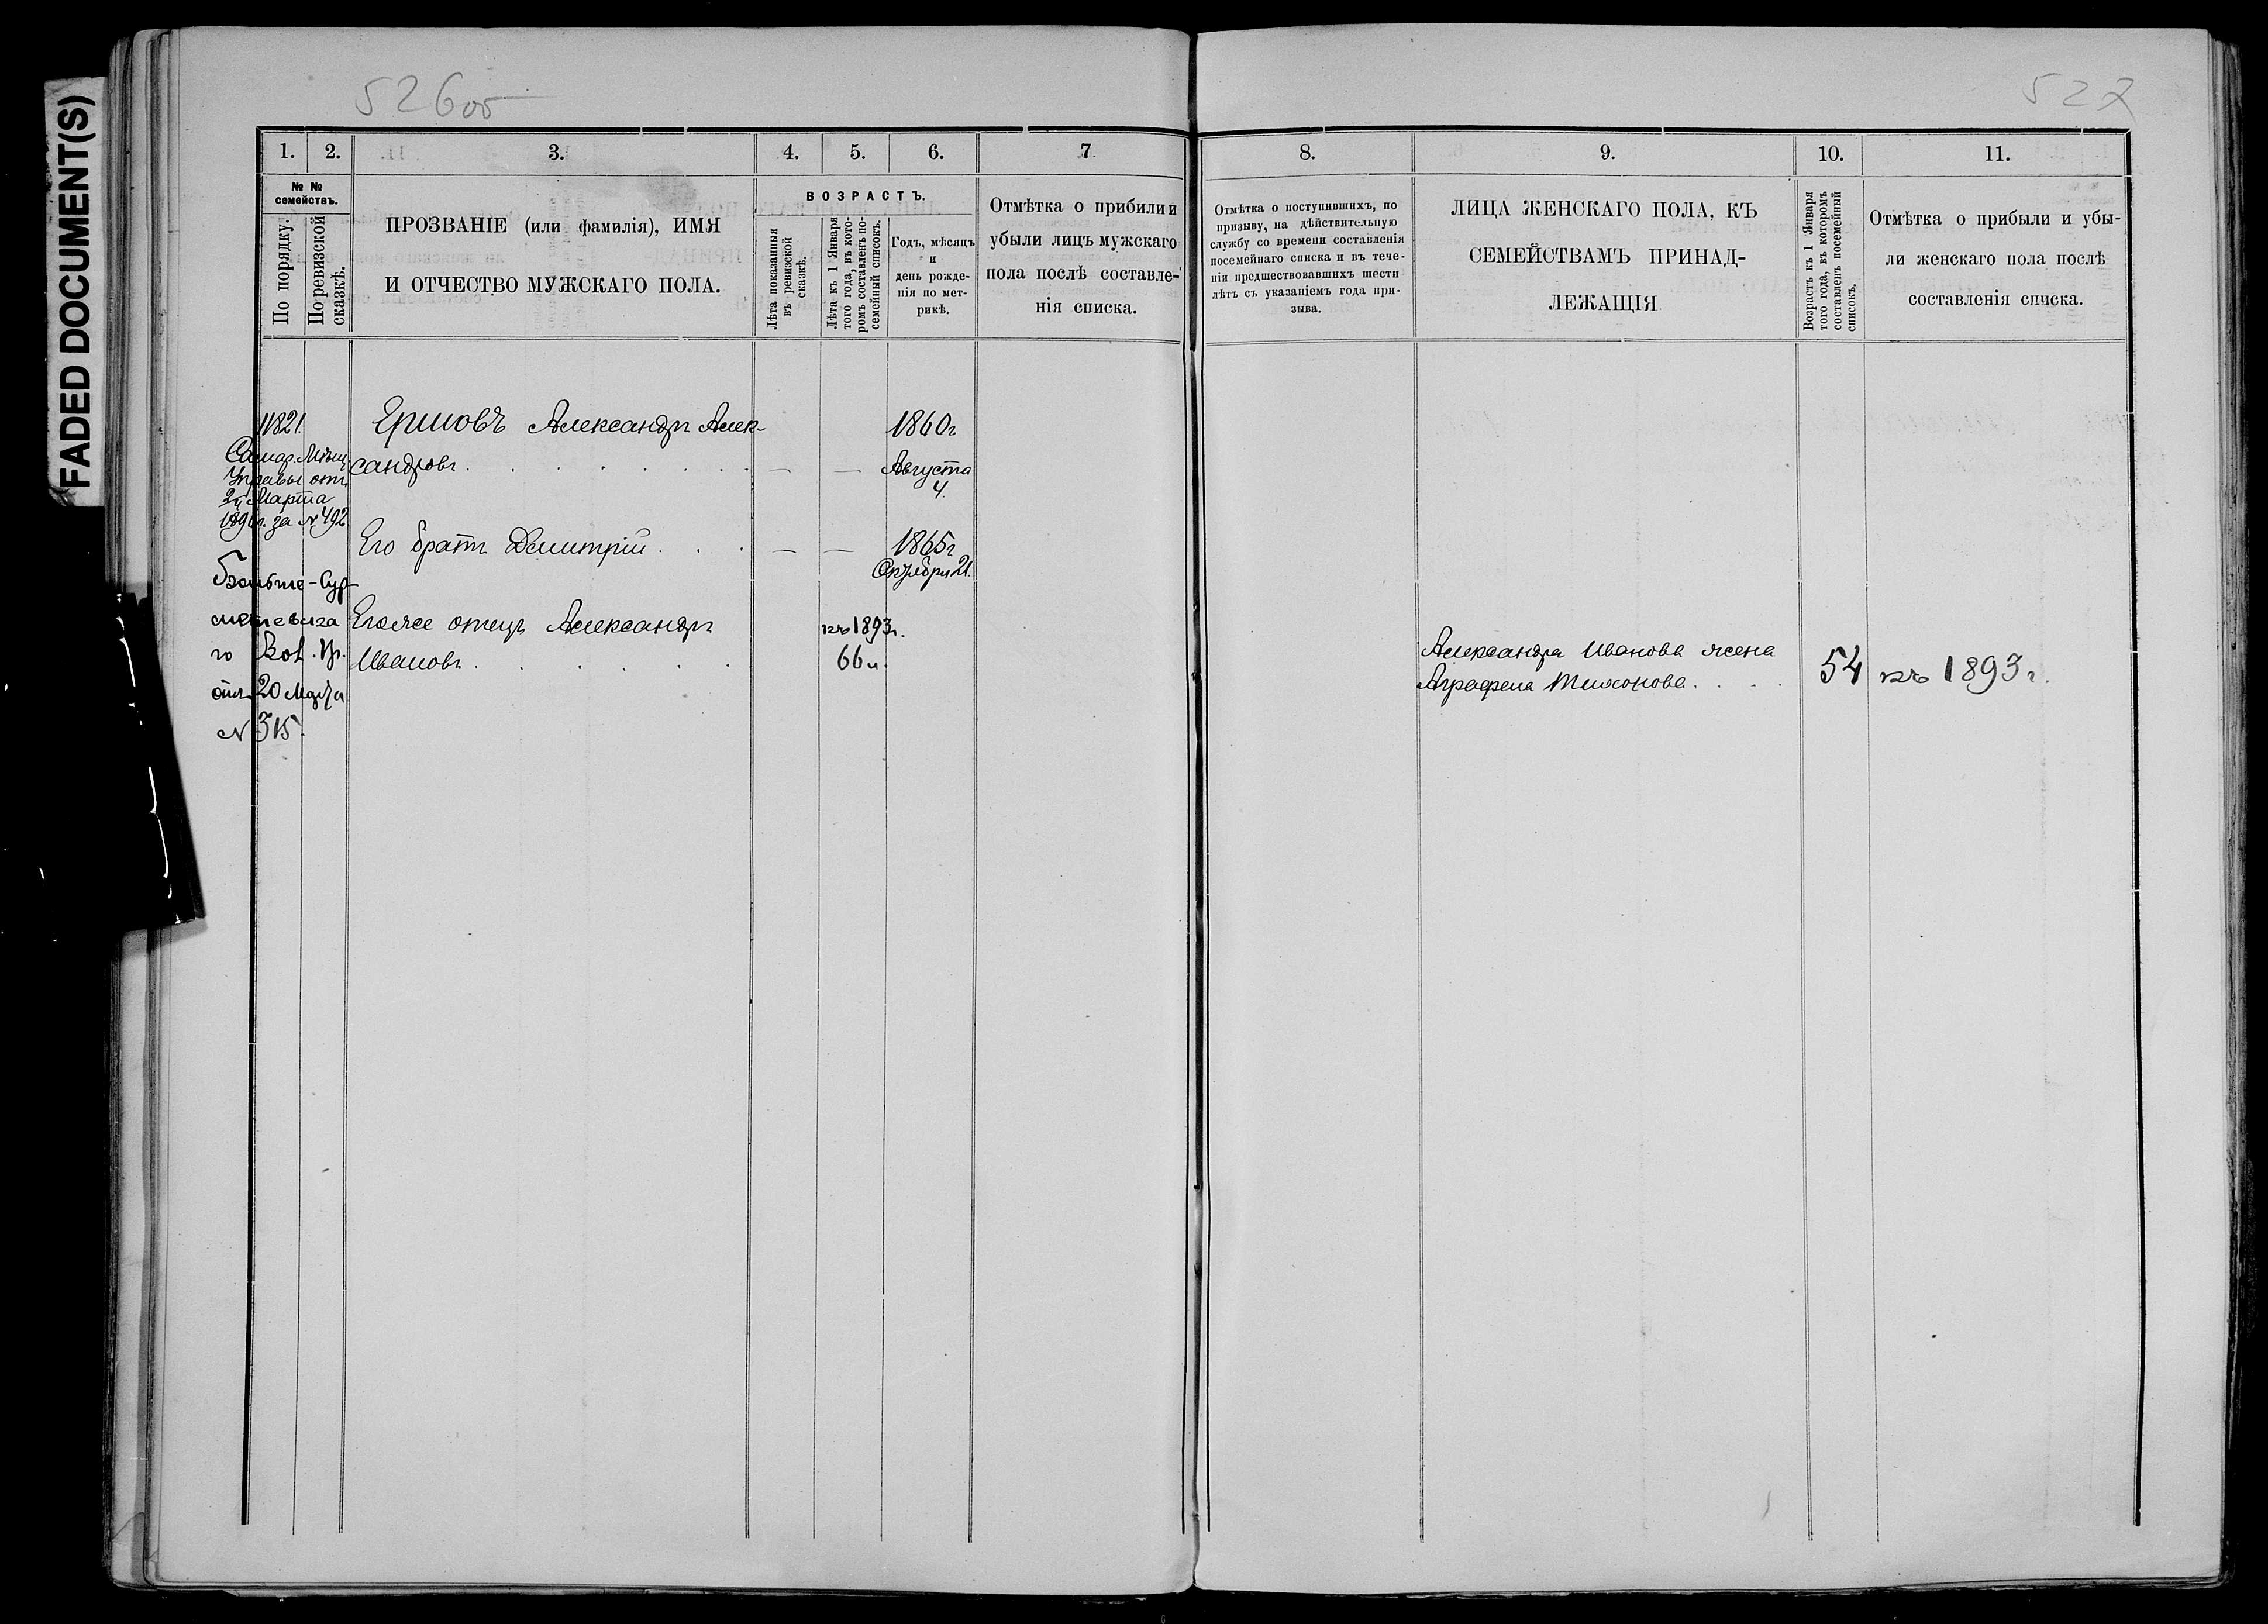 FADED DOCUMENT(S)
526об
527
1.
2.
3.
4.
5.
6.
7
№ №
семействъ.
По порядку.
По ревизской
сказкѣ.
ПРОЗВАНІЕ (или фамилія), ИМЯ
И ОТЧЕСТВО МУЖСКАГО ПОЛА.
ВОЗРАСТЪ.
Лѣта показанныя
въ ревизской
сказкѣ.
Лѣта къ 1 Января
того года, въ кото-
ромъ составленъ по-
семейный списокъ.
Годъ, мѣсяцъ
и
день рожде-
нія по мет-
рикѣ.
Отмѣтка о прибыли и
убыли лицъ мужскаго
пола послѣ составле-
нія списка.
11821
Самар. Мѣщ.
Управы отъ
24 Марта
за № 492
Ершовъ Александръ Алек-
сандровъ
1860г
Августа
4.
Его братъ Дмитрій
1865г
Октября 21.
отъ 20 Марта
№ 315.
Его же отецъ Александръ
Ивановъ
къ 1893г.
66 л.
8.
9.
10.
11.
Отмѣтка о поступившихъ, по
призыву, на дѣйствительную
службу со времени составленія
посемейнаго списка и въ тече-
ніи предшествовавшихъ шести
лѣтъ съ указаніемъ года при-
зыва.
ЛИЦА ЖЕНСКАГО ПОЛА, КЪ
СЕМЕЙСТВАМЪ ПРИНАД-
ЛЕЖАЩІЯ
Возрастъ къ 1 Января
того года, въ которомъ
составленъ посемейный
списокъ.
Отмѣтка о прибыли и убы-
ли женскаго пола послѣ
составленія списка.
Александра Иванова жена
Аграфена Тихонова
54
къ 1893г.